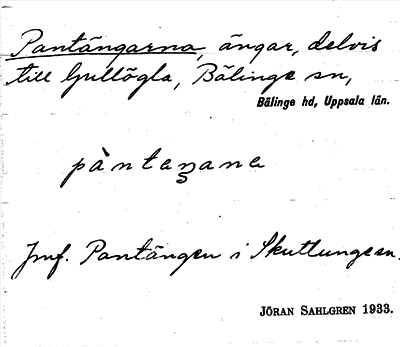 Pantängarna, ängar, delvis
till Gullögla, Bälinge sn,
Bälinge hd, Uppsala län.
Jmf. Pantängen i Skuttunge sn.
JÖRAN SAHLGREN 1933.